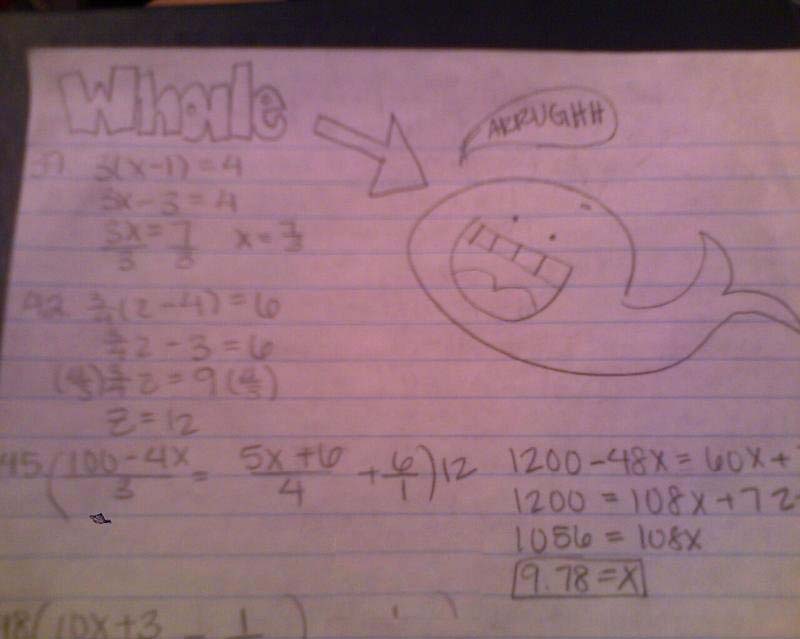 Whale
ARRUGHH
37 3(x-1) = 4
3x - 3 = 4
3x/3 = 7/3 x = 7/3
42. 3/4(z-4) = 6
3/4z - 3 = 6
(4/3)3/4z = 9(4/3)
z = 12
45 (100-4x/3 = 5x+6/4 + 6/1)12
1200-48x = 60x+
1200 = 108x+72
1056 = 108x
9.78 = x
48(10x+3 - 1